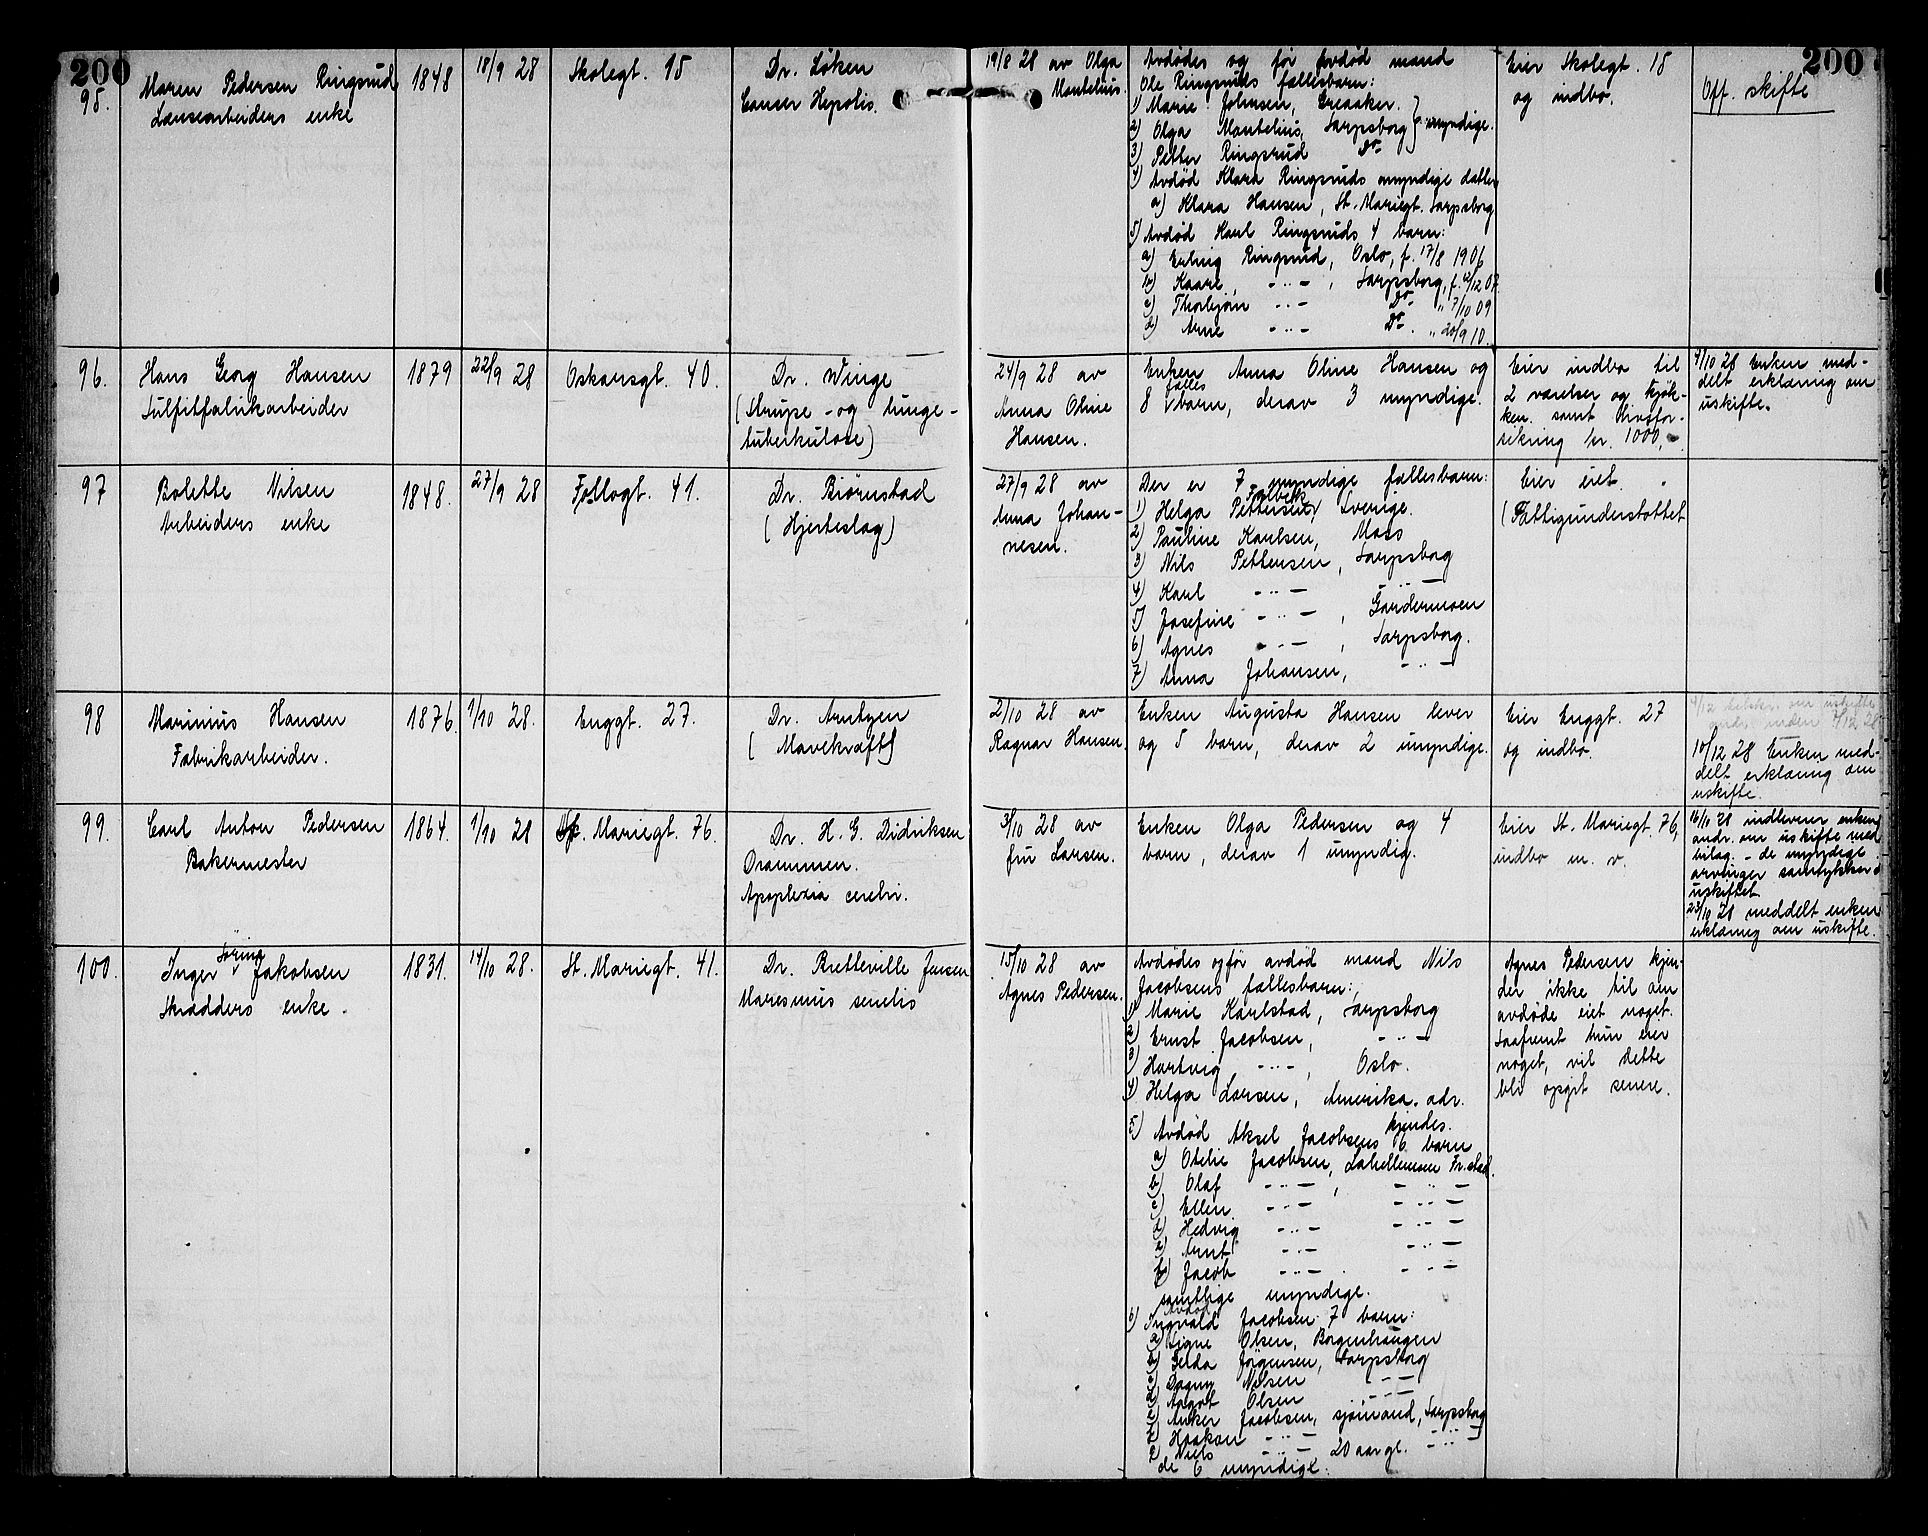 200
200
95.
Maren Pedersen Ringsrud
Lensearbeiders enke
1848
18/9 28
Skolegt. 15
Dr. Löken
Cancer Hepatis.
19/8 28 av Olga
Montelius.
Avdødes og før avdød mand
Ole Ringsruds fællesbarn:
1) Marie Johnsen, Greaaker.
2) Olga Montelius, Sarpsborg
3) Petter Ringsrud Do-
myndige.
4) Avdød Klara Ringsruds myndige datter
a) Klara Hansen, St. Mariegt. Sarpsborg
5) Avdød Karl Ringsruds 4 barn:
a) Erling Ringsrud, Oslo, f. 17/8 1906
b) Kaare, -"- , Sarpsborg, f. /12 07.
c) Thorbjørn -"- Do- " 7/10 09
d) Arne -"- Do- . " 20/9 10.
Eier Skolegt. 15
og indbo.
Off. skifte
96.
Hans Georg Hansen
Sulfitfabrikarbeider
1879
22/9 28
Oskarsgt. 40.
Dr. Winge
(Strupe- og lunge-
tuberkulose)
24/9 28 av
Anna Oline
Hansen.
Enken Anna Oline Hansen og
8 fælles barn, derav 3 myndige.
Eier indbo til
2 værelser og kjøk-
ken samt livsfor-
sikring kr. 1000,-
4/10 28 Enken med-
delt erklæring om
uskifte.
97
Bolette Nilsen
Arbeiders enke
1848.
27/9 28
Follogt. 41.
Dr. Biørnstad
(Hjerteslag)
27/9 28 av
Anna Johan-
nesen.
Der er 7 myndige fællesbarn:
1) Helga Pettersen, Sverige.
2) Pauline Karlsen, Moss
3) Nils Pettersen, Sarpsborg
4) Karl -"- -"-
5) Josefine -"- , Gardermoen
6) Agnes -"- , Sarpsborg.
7) Anna Johansen, -"-
Eier intet.
(Fattigunderstøttet
98
Marinius Hansen
Fabrikarbeider.
1876
1/10 28.
Enggt. 27.
Dr. Arntzen
(Mavekræft)
2/10 28 av
Ragnar Hansen.
Enken Augusta Hansen lever
og 5 barn, derav 2 umyndige.
Eier Enggt. 27
og indbo.
4/12 om uskifte
inden /12 28
10/12 28 Enken med-
delt erklæring om
uskifte.
99.
Carl Anton Pedersen
Bakermester
1864.
1/10 28
St. Mariegt. 76.
Dr. H. G. Didriksen
Drammen.
Apoplexia cerebri.
3/10 28 av
fru Larsen.
Enken Olga Pedersen og 4
barn, derav 1 umyndig.
Eier St. Mariegt. 76,
indbo m. v.
16/10 28 indleverer enken
andr. om uskifte med
bilag. - de myndige
arvinger samtykker i
uskiftet
23/10 28 meddelt enken
erklæring om uskifte.
100.
Inger Sørine Jakobsen
Skrædders enke.
1831.
14/10 28.
St. Mariegt. 41.
Dr. Bretteville Jensen
Maresmus senilis
15/10 28 av
Agnes Pedersen.
Avdødes og før avdød mand Nils
Jacobsens fællesbarn:
1) Marie Karlstad, Sarpsborg
2) Ernst Jacobsen, -"-
3) Hartvig -"- , Oslo.
4) Helga Larsen, Amerika. adr.
kjendes.
5) Avdød Aksel Jacobsens 6 barn
a) Otelie Jacobsen, Fr.stad.
b) Olaf -"- , -"-
c) Ellen -"- -"-
d) Hedvig -"- -"-
e) Arnt -"- -"-
f) Jacob -"- . -"-
samtlige umyndige.
6) Avdød
Ingvald Jacobsen 7 barn:
a) Signe Olsen, Borgenhaugen
b) Selda Jörgensen, Sarpsborg
c) Dagny Nilsen -"-
d) Aagot Olsen -"-
e) Anker Jacobsen, sjömand, Sarpsborg
f) Haakon -"- -"-
g) Niels -"- 20 aar gl. -"-
de 6 myndige.
Agnes Pedersen kjen-
der ikke til om
avdøde eiet noget.
Saafremt hun eier
noget, vil dette
bli opgit senere.